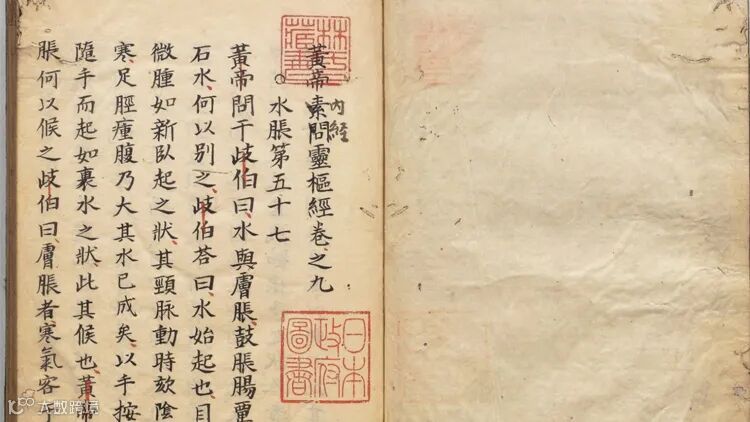 林氏藏書
黃帝素問靈樞經卷之九
內経
○水脹第五十七
黃帝問于歧伯曰水與膚脹鼓脹腸覃
石水何以別之歧伯荅曰水始起也目
微腫如新臥起之狀其頸脉動時欬陰
寒足脛瘇腹乃大其水已成矣以手按
隨手而起如裹水之狀此其候也黃帝
脹何以候之歧伯曰膚脹者寒氣客于
日本政府圖書
大数跨境